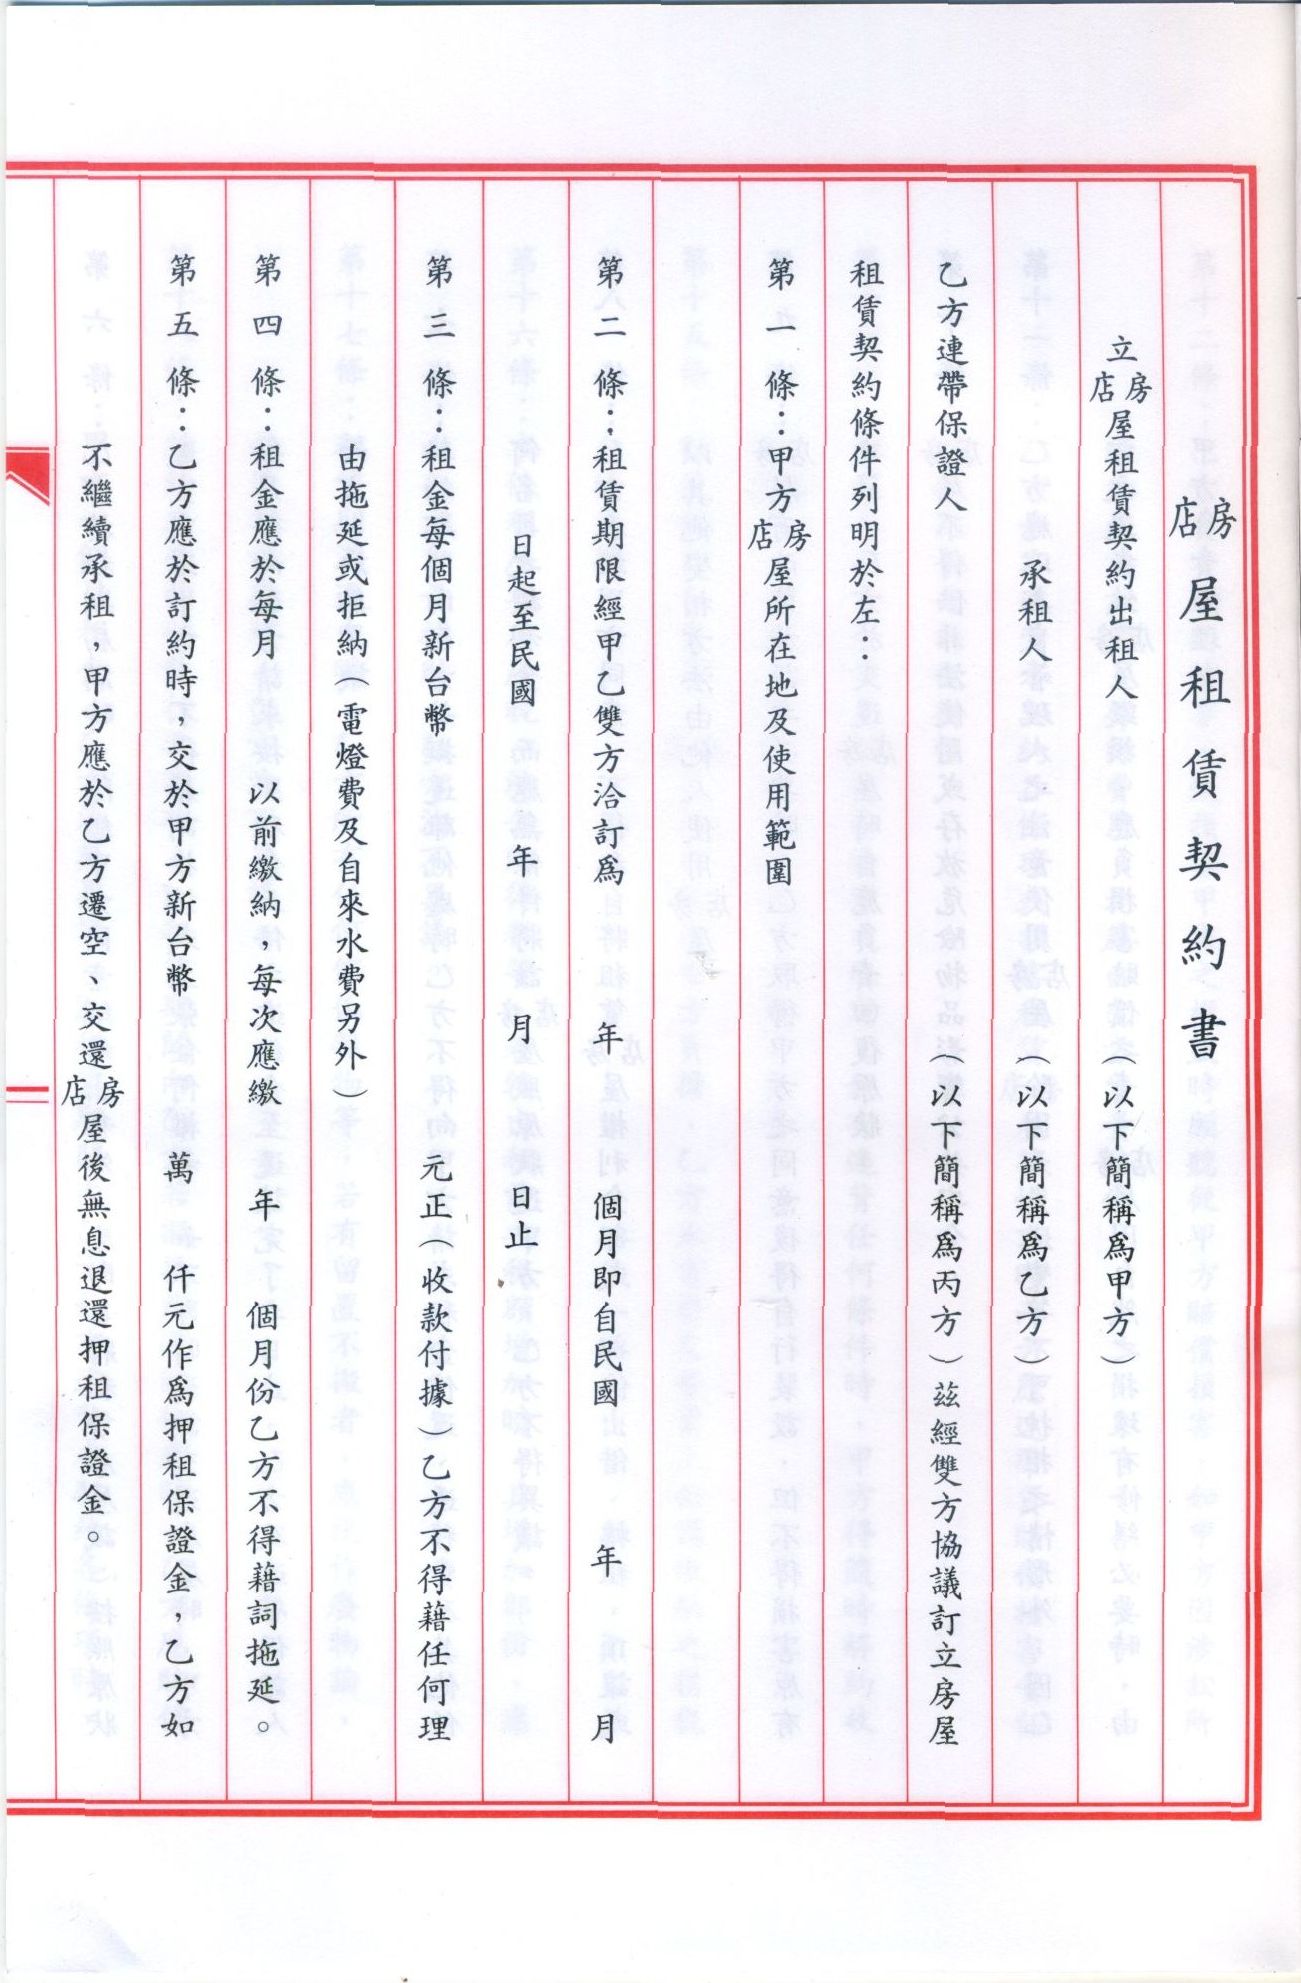 房店屋租賃契約書
立房店屋租賃契約出租人 (以下簡稱為甲方)
承租人 (以下簡稱為乙方)
乙方連帶保證人 (以下簡稱為丙方)茲經雙方協議訂立房屋
租賃契約條件列明於左：
第一條：甲方房店屋所在地及使用範圍
第二條：租賃期限經甲乙雙方洽訂為 年 個月即自民國 年 月
日起至民國 年 月 日止
第三條：租金每個月新台幣 元正(收款付據)乙方不得藉任何理
由拖延或拒納(電燈費及自來水費另外)
第四條：租金應於每月 以前繳納，每次應繳 年 個月份乙方不得藉詞拖延。
第五條：乙方應於訂約時，交於甲方新台幣 萬 仟元作為押租保證金，乙方如
不繼續承租，甲方應於乙方遷空、交還房店屋後無息退還押租保證金。